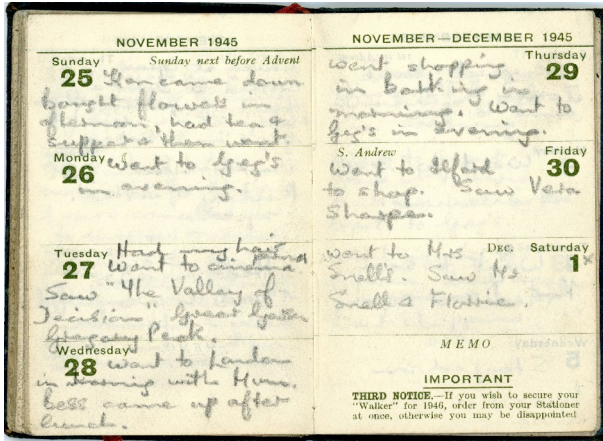 NOVEMBER 1945
Sunday Sunday next before Advent
25 Ken came down
bought flowers in
afternoon, had tea &
supper & then went.
Monday Went to Geg's
26 in evening.
Tuesday Had my hair
27 Went to cinema
Saw "The Valley of
Decision" Greer Garson
Gregory Peck.
Wednesday
28 Went to London
in morning with Mum.
Bess came up after
lunch.
NOVEMBER—DECEMBER 1945
Thursday
went shopping 29
in Barking in
morning. Went to
Geg's in evening.
S. Andrew Friday
Went to Ilford 30
to shop. Saw Vera
Sharpe.
DEC. Saturday
went to Mrs 1
Snells. Saw Mr
Snell & Florrie.
MEMO
IMPORTANT
THIRD NOTICE.—If you wish to secure your
"Walker" for 1946, order from your Stationer
at once, otherwise you may be disappointed